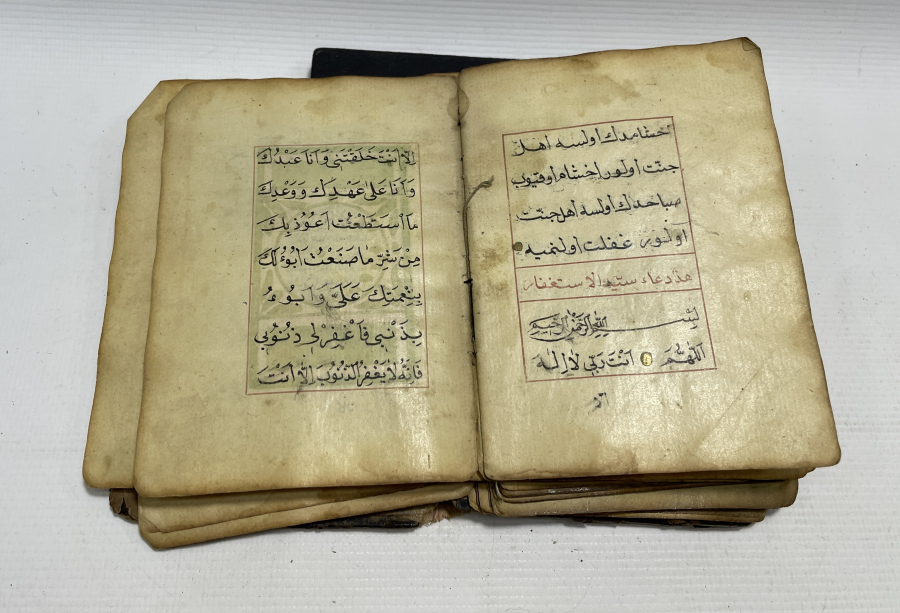 اخشامدك اولسه اهل
جنت اولور اخشام اوقيوب
صباحدك اولسه اهل جنت
اولنور غفلت اولنميه
هذ دعاء سيد الاستغفار
بسم الله الرحمن الرحيم
اللّٰهُمَّ اَنْتَ رَبّى لَا اِلٰهَ
اِلَّا اَنْتَ خَلَقْتَنى وَاَنَا عَبْدُكَ
وَاَنَا عَلٰى عَهْدِكَ وَوَعْدِكَ
مَا اسْتَطَعْتُ اَعُوذُ بِكَ
مِنْ شَرِّ مَا صَنَعْتُ اَبُوءُ لَكَ
بِنِعْمَتِكَ عَلَىَّ وَاَبُوءُ
بِذَنْبى فَاغْفِرْلى ذُنُوبى
فَاِنَّهُ لَا يَغْفِرُ الذُّنُوبَ اِلَّا اَنْتَ